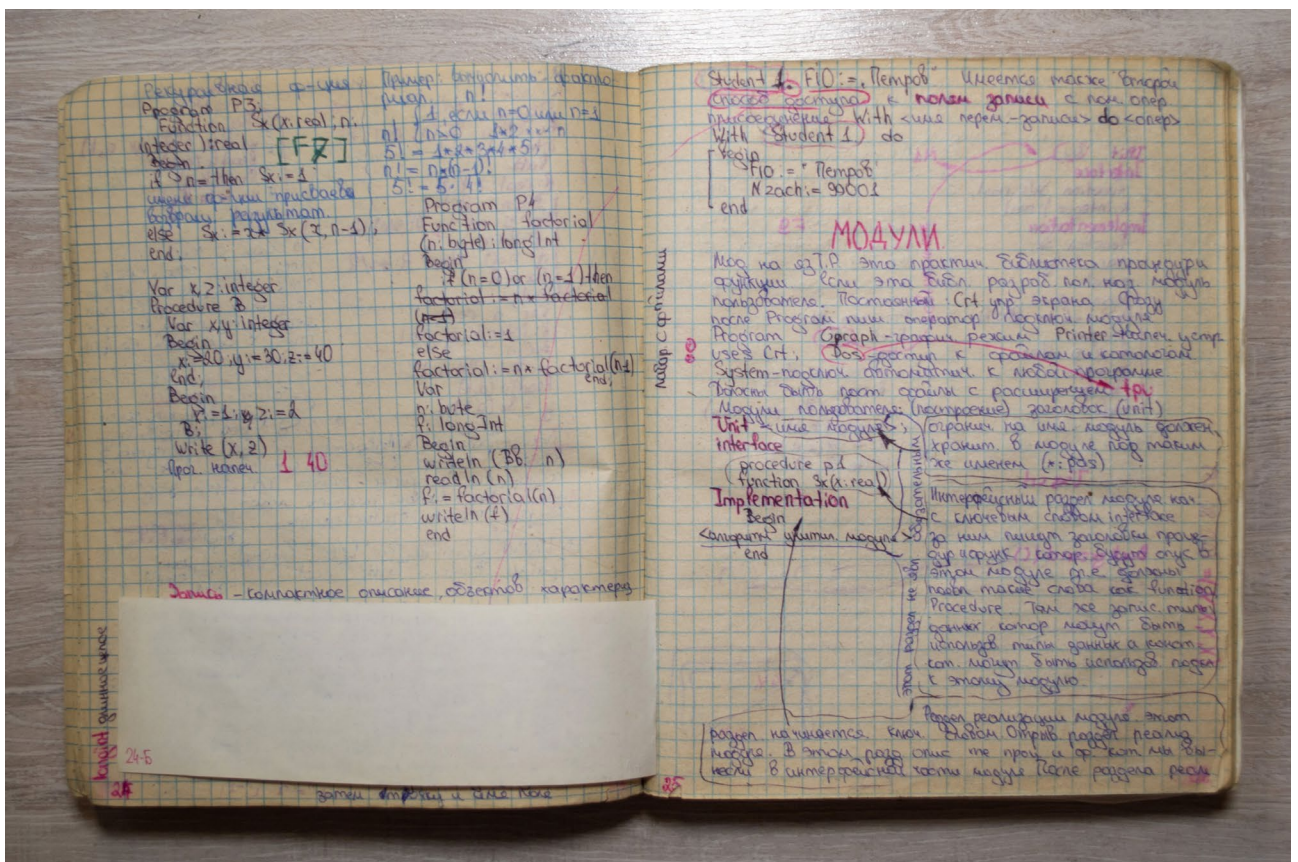 Рекурсивная ф-ция.
Program P3;
Function Sx(x:real; n:
integer):real
[F7]
Begin
if n= then Sx:=1
имени ф-ции присваев
возвращ результат
else Sx:=x* Sx(x,n-1);
end;
Var x,z:integer
Procedure B
Var x,y:integer
Begin
x:=20;y:=30;z:=40
end;
Begin
x:=1; z:=2
B;
write (x, z)
Прог. напеч 1 40
Пример: вычислить факто
риал n!
1, если n=0 или n=1
n! n>0 1*2*...*n
5! = 1*2*3*4*5
n! = n*(n-1)!
5! = 5 · 4!
Program P4
Function factorial
(n:byte):longInt
Begin
if(n=0)or (n=1)then
factorial:=n* factorial
(n-1)
factorial:=1
else
factorial:=n* factorial(n-1)
end;
Var
n:byte
f:longInt
Begin
writeln (Вв. n)
readln (n)
f:=factorial(n)
writeln (f)
end
Запись - компактное описание объектов характериз
longint длинное целое
24-Б
24
затем точку и имя поле
Student 1. FIO:=„Петров" Имеется также второй
способ доступа к полям записи с пом. опер
присоединения With <имя перем-записи> do <опер>
With Student 1 do
Begin
FIO:="Петров"
Nzach:=99001
end
МОДУЛИ
Мод на яз Т.Р. это практич библиотека процедур и
функций Если эта библ. разраб пол. наз модуль
пользователя. Crt упр экрана Сразу
после Program пиш оператор подключ модуля
Program Graph-график режим Printer-напеч устр
uses Crt; Dos-доступ к файлам и каталогам
System-подключ автоматич. к любой программе
Должны быть дост файлы с расширением tpu
Модули пользователя (построение) заголовок (unit)
Unit <имя модуля>;
огранич на имя. модуль должен
хранит в модуле под таким
же именем (*.pas)
interface
procedure p1
function Sx(x:real)
Implementation
Begin
<алгоритм инитил. модуля>
end
работ с файлами
этот раздел не явл обязательным
Интерфейсный раздел модуле нач.
с ключевым словом interface
за ним пишут заголовки проце-
дур и функ. котор будут опис в
этом модуле т.е должны
такие слова как function
Procedure. Там же запис. типы
данных котор могут быть
использов типы данных а конст
кот. могут быть использов подкл
к этому модулю
Раздел реализации модуле. этот
раздел начинается ключ. словом Открыв раздел реализ
модуле. В этом разд опис те проц и ф-кот мы вы-
несли в интерфейсной части модуле После раздела реали
25